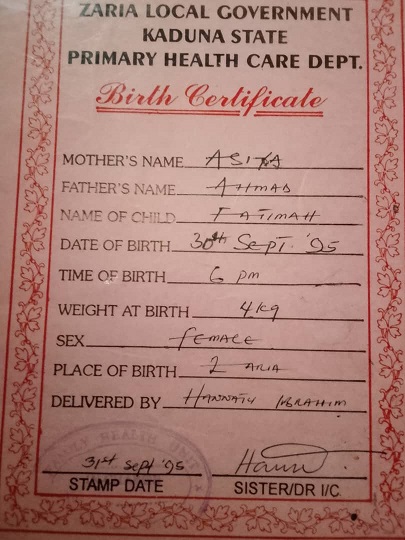 ZARIA LOCAL GOVERNMENT
KADUNA STATE
PRIMARY HEALTH CARE DEPT.
Birth Certificate
MOTHER'S NAME
FATHER'S NAME AHMAD
NAME OF CHILD FATIMAH
DATE OF BIRTH 30th Sept. '95
TIME OF BIRTH 6 pm
WEIGHT AT BIRTH 4kg
SEX FEMALE
PLACE OF BIRTH ZARIA
DELIVERED BY IBRAHIM
HEALTH
31st Sept '95
STAMP DATE SISTER/DR I/C